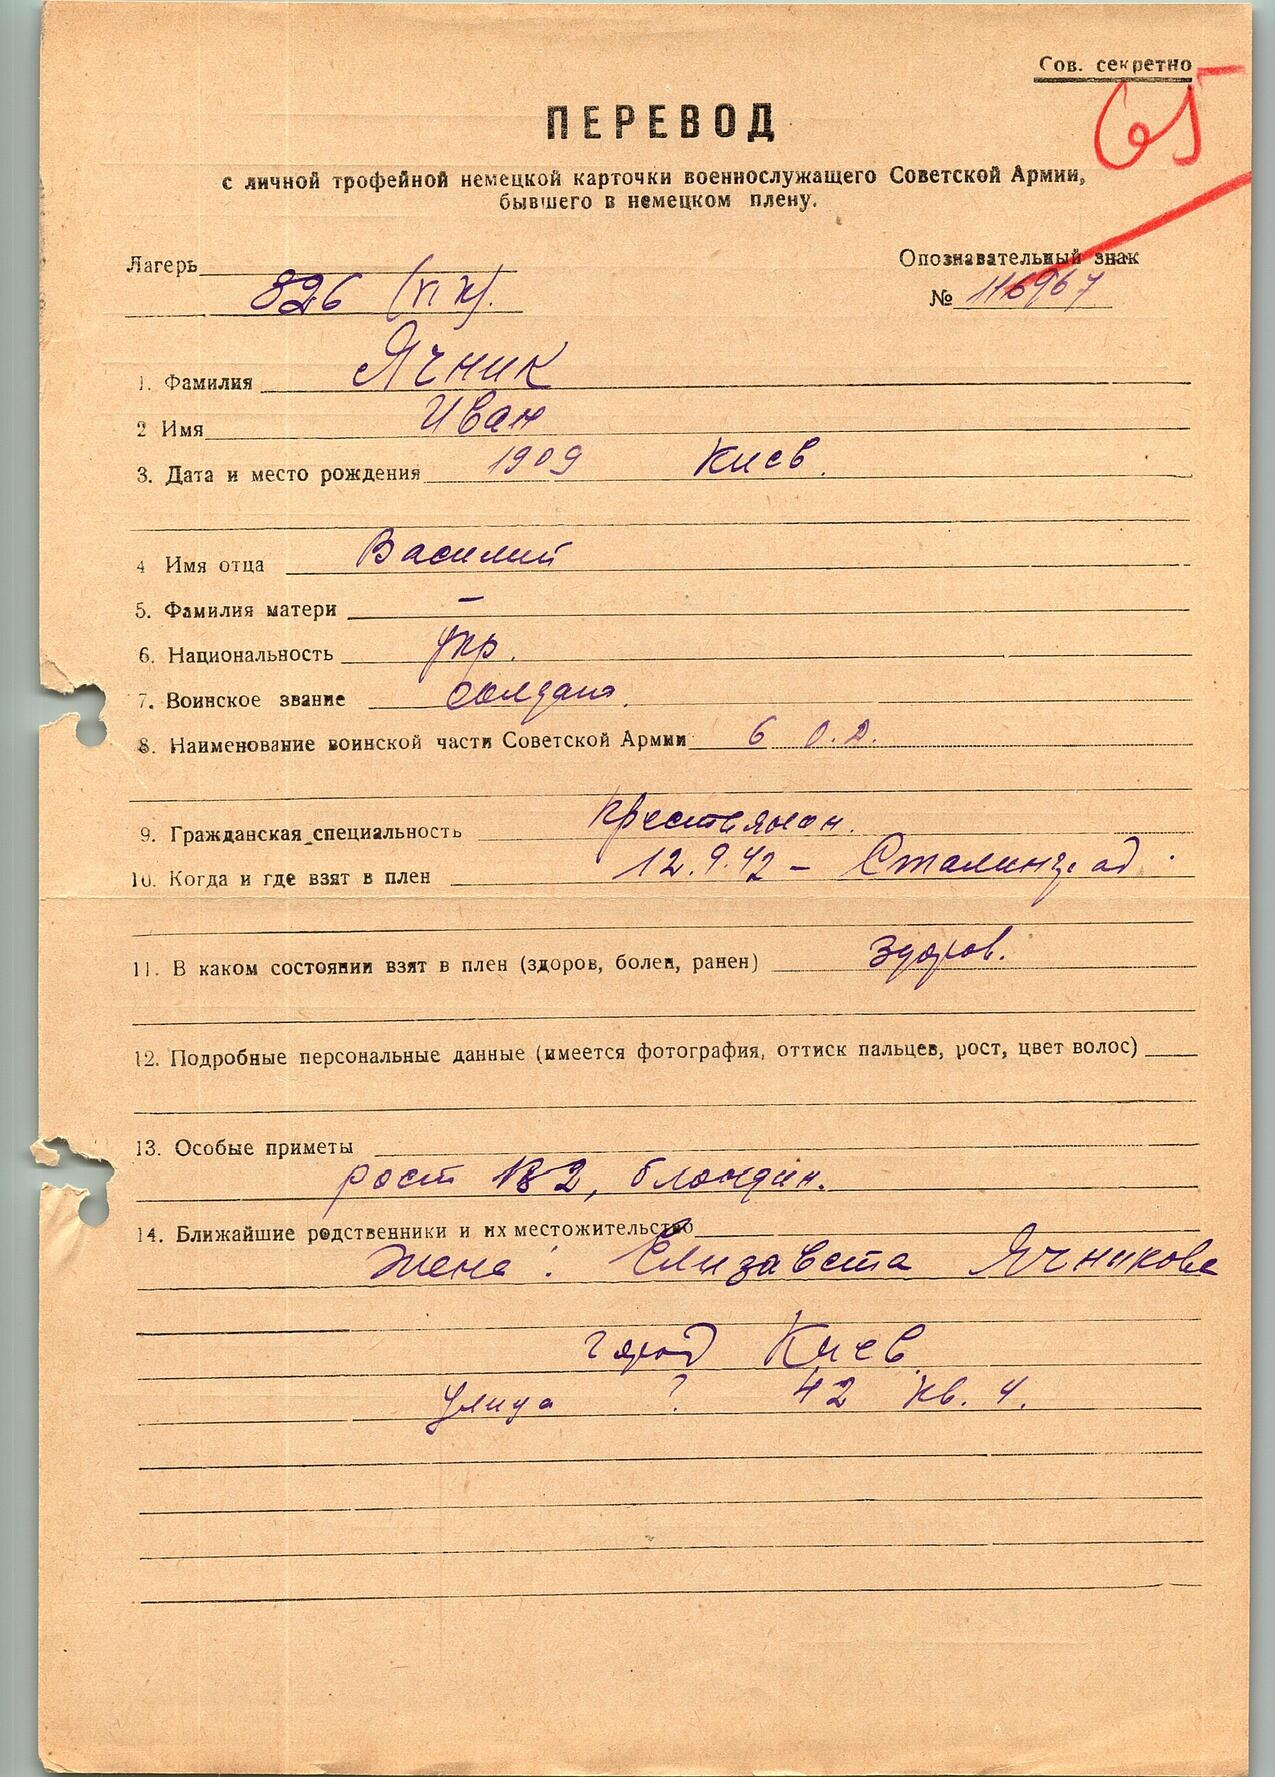 Сов. секретно
65
ПЕРЕВОД
с личной трофейной немецкой карточки военнослужащего Советской Армии,
бывшего в немецком плену.
Лагерь 826
Опознавательный знак
№ 116967
1. Фамилия Ячник
2 Имя Иван
3. Дата и место рождения 1909 Киев.
4 Имя отца Василий
5. Фамилия матери –
6. Национальность укр.
7. Воинское звание солдат.
8. Наименование воинской части Советской Армии 6
9. Гражданская специальность крестьянин.
10. Когда и где взят в плен 12.9.42 – Сталинград.
11. В каком состоянии взят в плен (здоров, болен, ранен) здоров.
12. Подробные персональные данные (имеется фотография, оттиск пальцев, рост, цвет волос)
13. Особые приметы
рост 182, блондин.
14. Ближайшие родственники и их местожительство
жена: Елизавета Ячникова
город Киев
улица ? 42 кв. 4.